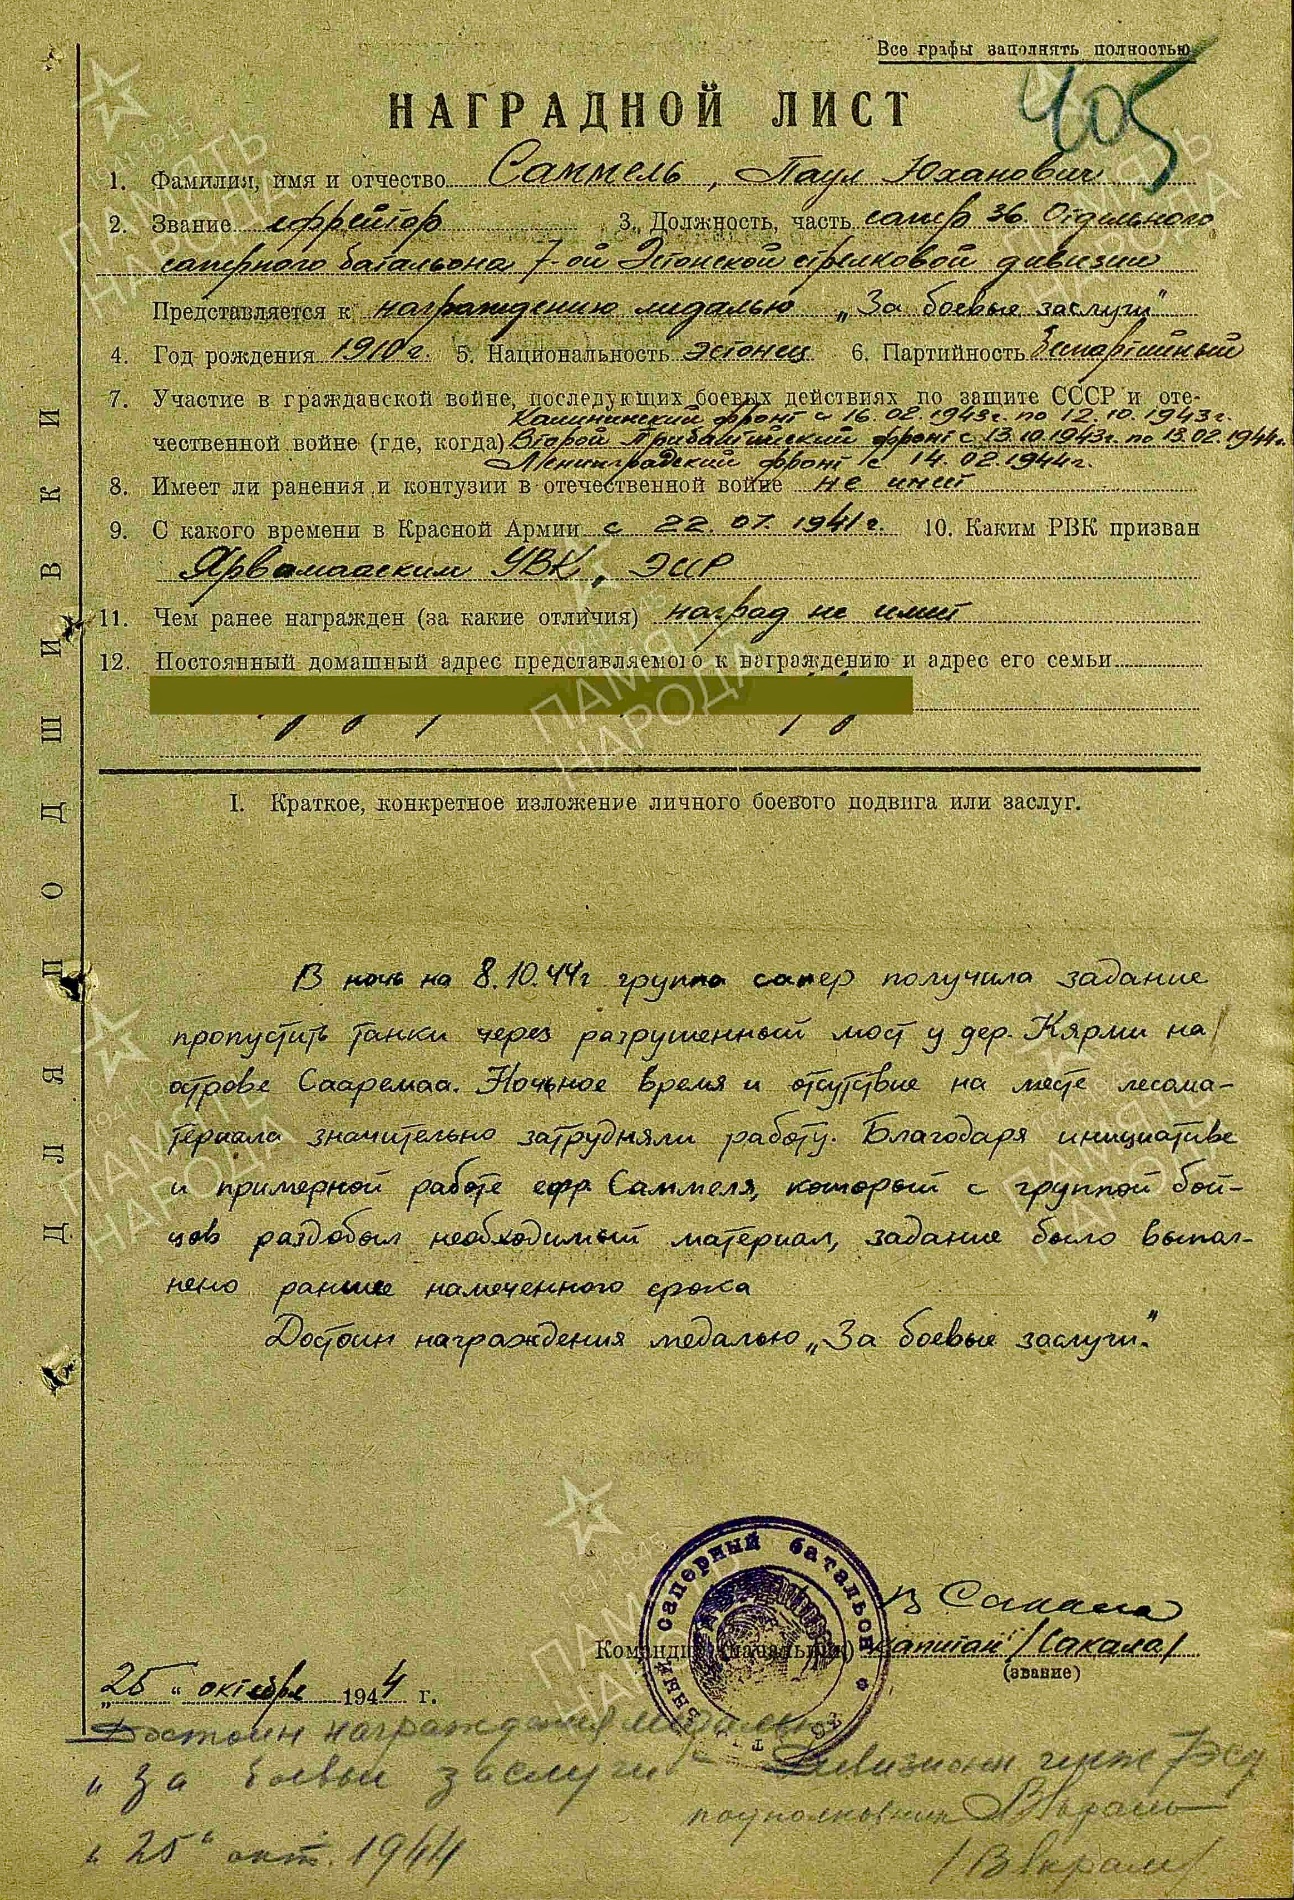 Все графы заполнять полностью
405
НАГРАДНОЙ ЛИСТ
1. Фамилия, имя и отчество Саммель, Паул Юханович
2. Звание ефрейтор 3. Должность, часть сапер 36. Отдельного
саперного батальона 7-ой Эстонской стрелковой дивизии
Представляется к награждению медалью „За боевые заслуги"
4. Год рождения 1910 г. 5. Национальность эстонец 6. Партийность беспартийный
7. Участие в гражданской войне, последующих боевых действиях по защите СССР и оте-
Калининский фронт с 16.02.1943г. по 12.10.1943г.
чественной войне (где, когда) Второй Прибалтийский фронт с 13.10.1943г. по 13.02.1944г.
Ленинградский фронт с 14.02.1944г.
8. Имеет ли ранения и контузии в отечественной войне не имеет
9. С какого времени в Красной Армии с 22.07.1941г. 10. Каким РВК призван
Ярвамааским УВК, ЭССР
11. Чем ранее награжден (за какие отличия) наград не имеет
12. Постоянный домашный адрес представляемого к награждению и адрес его семьи
I. Краткое, конкретное изложение личного боевого подвига или заслуг.
В ночь на 8.10.44г группа сапер получила задание
пропустить танки через разрушенный мост у дер. Кярми на
острове Сааремаа. Ночьное время и отсутствие на месте лесома-
териала значительно затрудняли работу. Благодаря инициативе
и примерной работе ефр. Саммеля, который с группой бой-
цов раздобыл необходимый материал, задание было выпол-
нено раньше намеченного срока
Достоин награждения медалью „За боевые заслуги."
саперный батальон
В Сакала
Командир (начальник) капитан /Сакала/
(звание)
„25" октября 1944 г.
Достоин награждения медалью
„За боевые заслуги" Дивизион инж 7эсд
подполковник
„25" окт. 1944
ДЛЯ ПОДШИВКИ
1941-1945
ПАМЯТЬ
НАРОДА